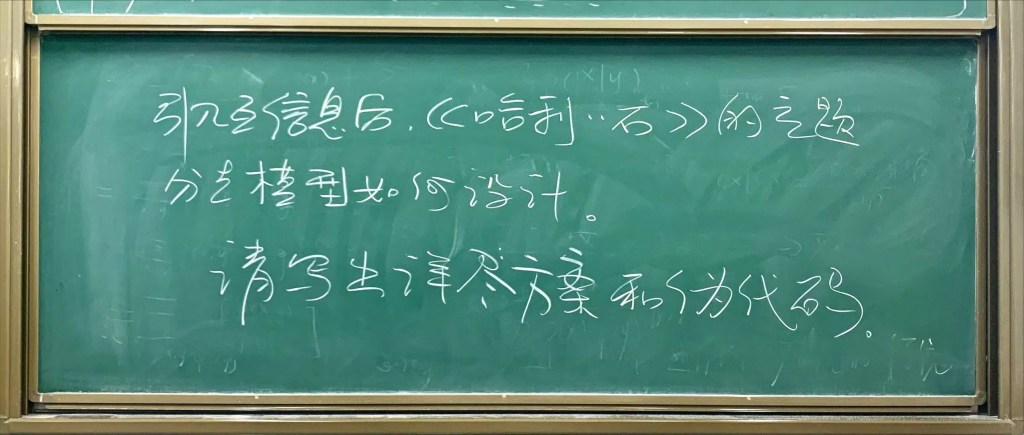 引入互信息后,《哈利··石》的主题
分类模型如何设计。
请写出详尽方案和伪代码。
(x|y)